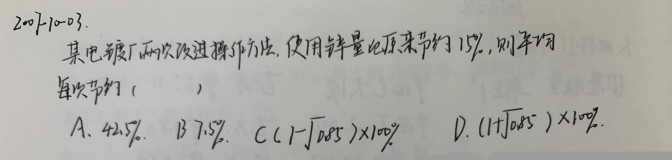 2007-10-03.
某电镀厂两次改进操作方法,使用锌量比原来节约15%,则平均
每次节约( )
A. 42.5%. B 7.5%. C (1-√0.85)×100% D. (1+√0.85)×100%.